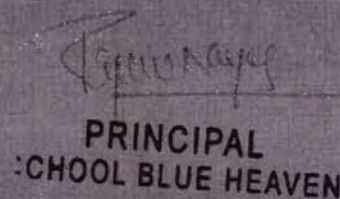 PRINCIPAL
:CHOOL BLUE HEAVEN